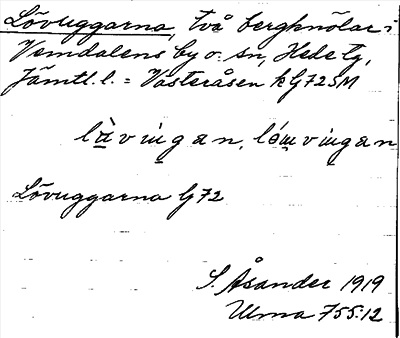 Lövuggarna, två bergknölar i
Vemdalens by o. sn, Hede tg,
Jämtl. l. = Västeråsen k G72SM
Lövuggarna G72
S. Åsander 1919
Ulma 755:12